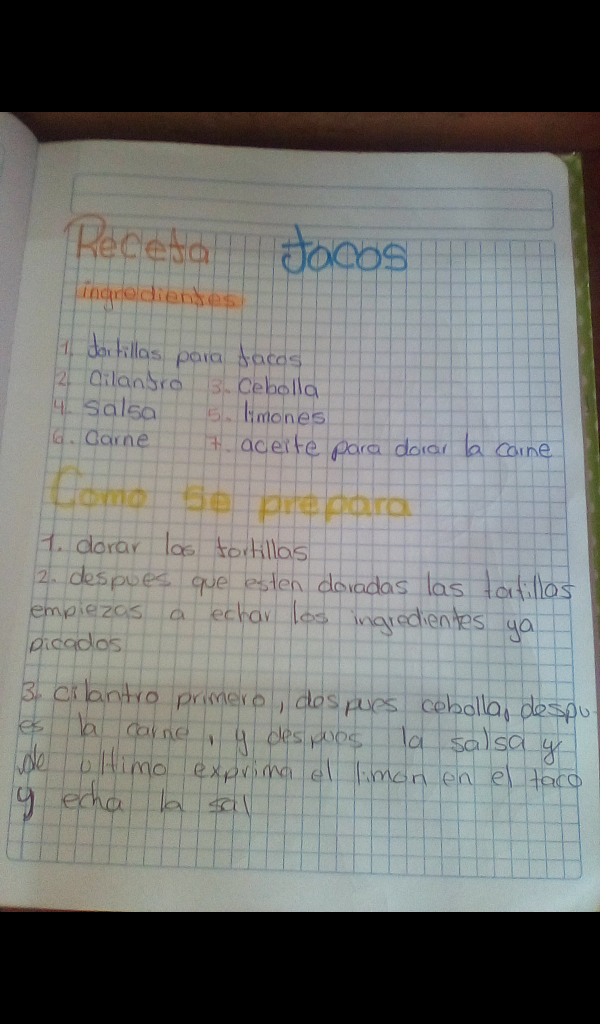 Receta tacos
ingredientes
1. tortillas para tacos
2. Cilantro 3. Cebolla
4. Salsa 5. limones
6. Carne 7. aceite para dorar la carne
Como se prepara
1. dorar las tortillas
2. despues que esten doradas las tortillas
empiezas a echar los ingredientes ya
picados
3. cilantro primero, despues cebolla, despu
es la carne, y despues la salsa y
de ultimo exprima el limon en el taco
y echa la sal